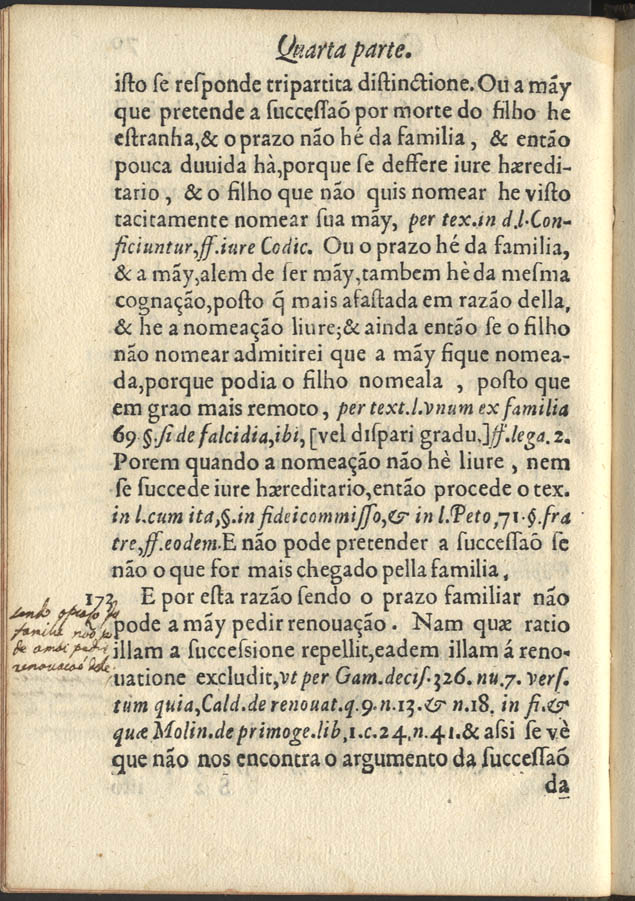 Quarta parte.
iſto ſe reſponde tripartita diſtinctione. Ou a mãy
que pretende a ſucceſſaõ por morte do filho he
eſtranha,& o prazo não hé da familia, & então
pouca duuida hà,porque ſe deffere iure hæredi-
tario, & o filho que não quis nomear he viſto
tacitamente nomear ſua mãy, per tex.in d.l.Con-
ficiuntur,ff.iure Codic. Ou o prazo hé da familia,
& a mãy,alem de ſer mãy,tambem hè da meſma
cognação,poſto q̃ mais afaſtada em razão della,
& he a nomeação liure;& ainda então ſe o filho
não nomear admitirei que a mãy fique nomea-
da,porque podia o filho nomeala , poſto que
em grao mais remoto, per text.l.vnum ex familia
69.§.ſi de falcidia,ibi, [vel diſpari gradu.]ff.lega.2.
Porem quando a nomeação não hè liure, nem
ſe ſuccede iure hæreditario,então procede o tex.
in l.cum ita,§.in fideicommiſſo,& in l.Peto,71.§.fra
tre,ff.eodem.E não pode pretender a ſucceſſaõ ſe
não o que for mais chegado pella familia,
173 E por eſta razão ſendo o prazo familiar não
pode a mãy pedir renouação. Nam quæ ratio
illam a ſucceſſione repellit,eadem illam á reno-
uatione excludit,vt per Gam.deciſ.326.nu.7.verſ.
tum quia,Cald.de renouat.q.9.n.13.& n.18. in fi.&
quæ Molin.de primoge.lib,1.c.24.n.41.& aſsi ſe vè
que não nos encontra o argumento da ſucceſſaõ
da
sendo o prazo
familia não
de a mai pedir
renouacaõ